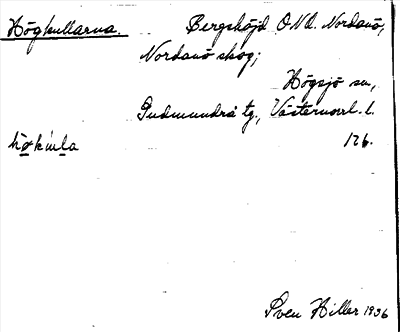 Högkullarna. Bergshöjd O.N.O. Nordanö,
Nordanö skog;
Högsjö sn,
Gudmundrå tg., Västernorrl. l.
126.
Sven Hiller 1936